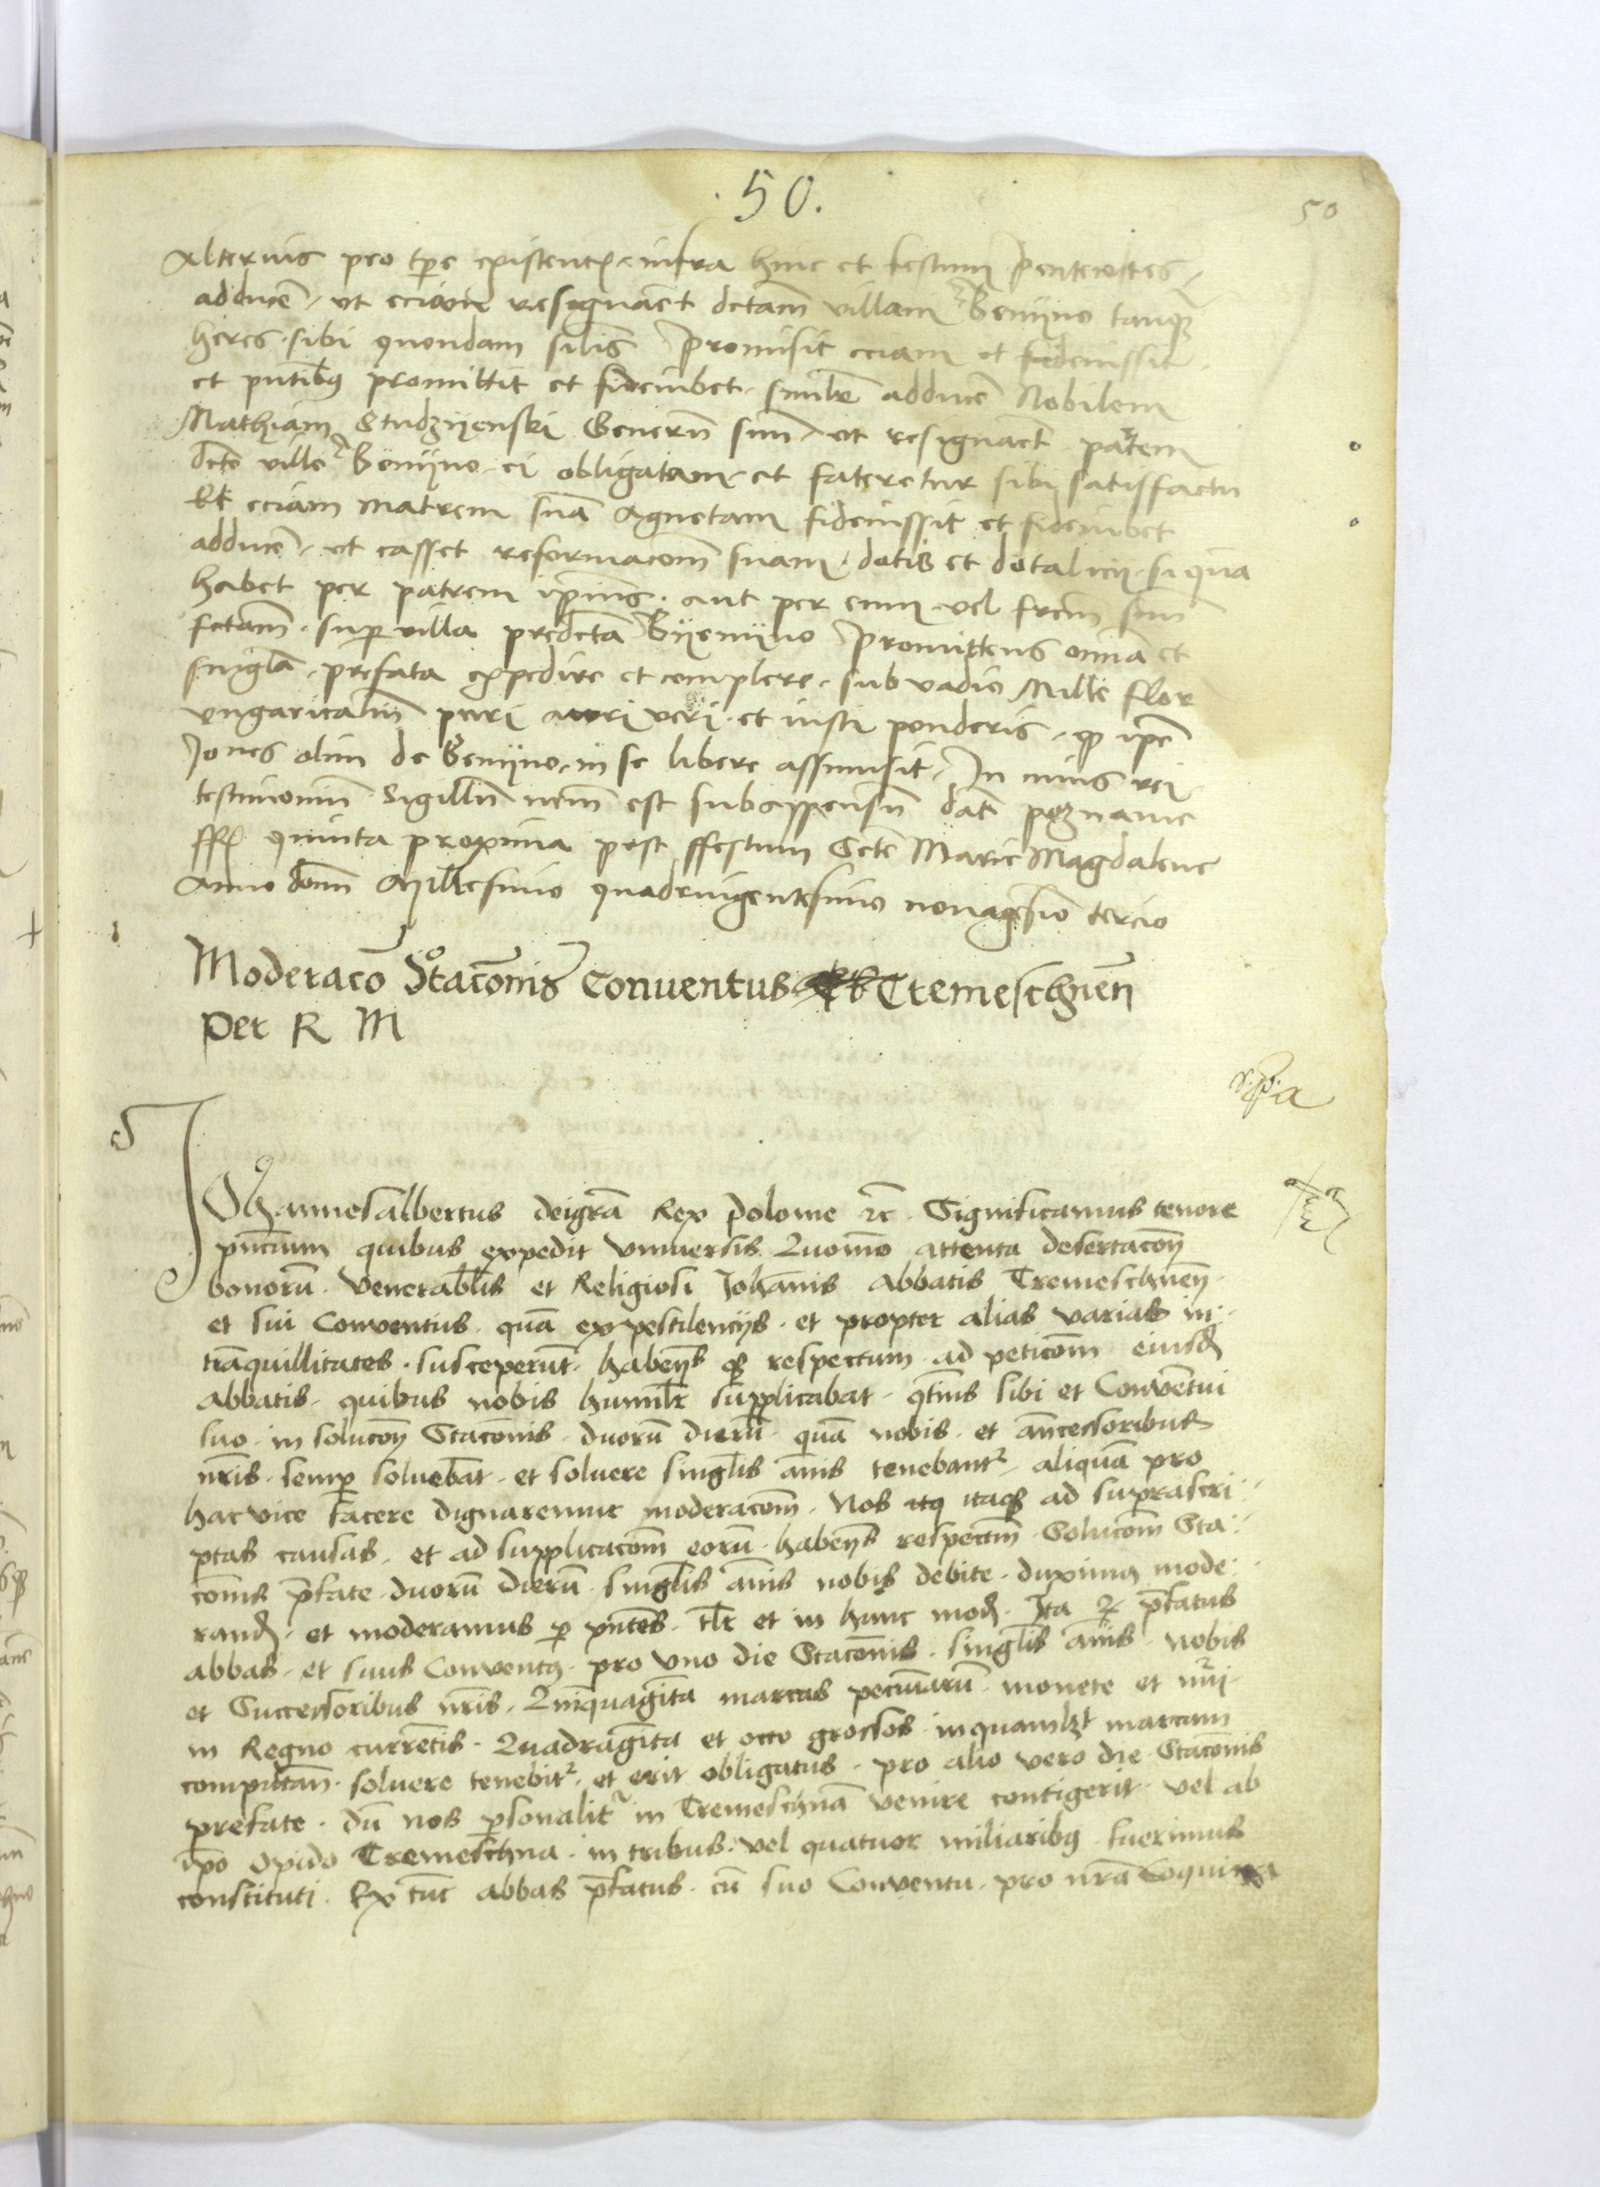 .50.
50
Alterius pro tpe existent infra hinc et festum Penthecostes
adducē ut eciam resignaēt dctam villam Benijno tanq̃
heres sibi quondam silis Promisit eciam et fideiussit
et pntibus promittit et fideiubet simlr adducē Nobilem
Mathiam Studzijenski Generū suū ut resignaēt partem
dcte ville Benijno ei obligatam et fateretur sibi satisfactu
Et eciam matrem suā Agnetam fideiussit et fideiubet
adducē ut casset reformacōm suam dotis et dotalicij si quā
habet per patrem ipsius aut per eum vel frem suū
fctam sup villa predcta Bijenijno Promittens omīa et
singla prefata expedire et complere sub vadio Mille flor
ungaricaliū puri auri veri et iusti ponderis qd ipe
Jones olim de Benijno in se libere assumsit In cuius rei
testimoniū Sigillū nrm est subappensū Dat poznanie
ffr quinta proxima post ffestum Scte Marie Magdalene
Anno domī Millesimo quadringentesimo nonagesīo tercio
Moderacō Stacōnis Conuentus Tremeschnen
Per R M
S
JOhannesalbertus deigrā Rex Polonie rc̄ Significamus tenore
pn̄cium quibus expedit vniuersis Quomō attenta desertacōn
bonorū venerablis et Religiosi Johannis abbatis Tremeschnen
et sui Conventus quā ex pestilencijs et propter alias varias in
trāquillitates susceperūt habens q3 respectum ad peticōm eiusd
abbatis quibus nobis humilr supplicabat qtinus sibi et Conventui
suo in solucōn Stacōnis duorū dierū quā nobis et ancessoribus
nr̄is semp soluebāt et soluere singlis annis tenebant aliquā pro
hac vice facere dignaremur moderacōm Nos itq itaq3 ad suprascri
ptas causas et ad supplicacōm eorū habens respectm Solucōm Sta
cōnis pfate duorū dierū singlis annis nobis debite duximus mode
rand et moderamus p pn̄tes tlr et in hunc mod Ita q pfatus
abbas et suus Conventus pro vno die Stacōnis singlis annis nobis
et Successoribus nr̄is Quinquagīta marcas pecuniarū monete et nūi
in Regno currētis Quadragīta et octo grossos inquamlibt marcam
computan soluere tenebit et erit obligatus pro alio vero die Stacōnis
prefate dū nos psonalit in Tremeschnā venire contigerit vel ab
ipo opido Tremeschna in tribus vel quatuor miliaribus fuerimus
constituti Ex tūc abbas pfatus cū suo Conventu pro nr̄a Coquina